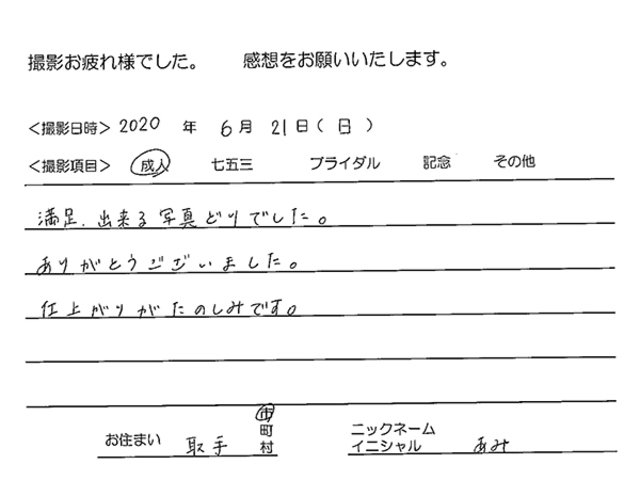 撮影お疲れ様でした。 感想をお願いいたします。
<撮影日時> 2020 年 6月 21日(日)
<撮影項目> 成人 七五三 ブライダル 記念 その他
満足、出来る写真どりでした。
ありがとうございました。
仕上がりがたのしみです。
お住まい 取手 市町村
ニックネーム
イニシャル あみ